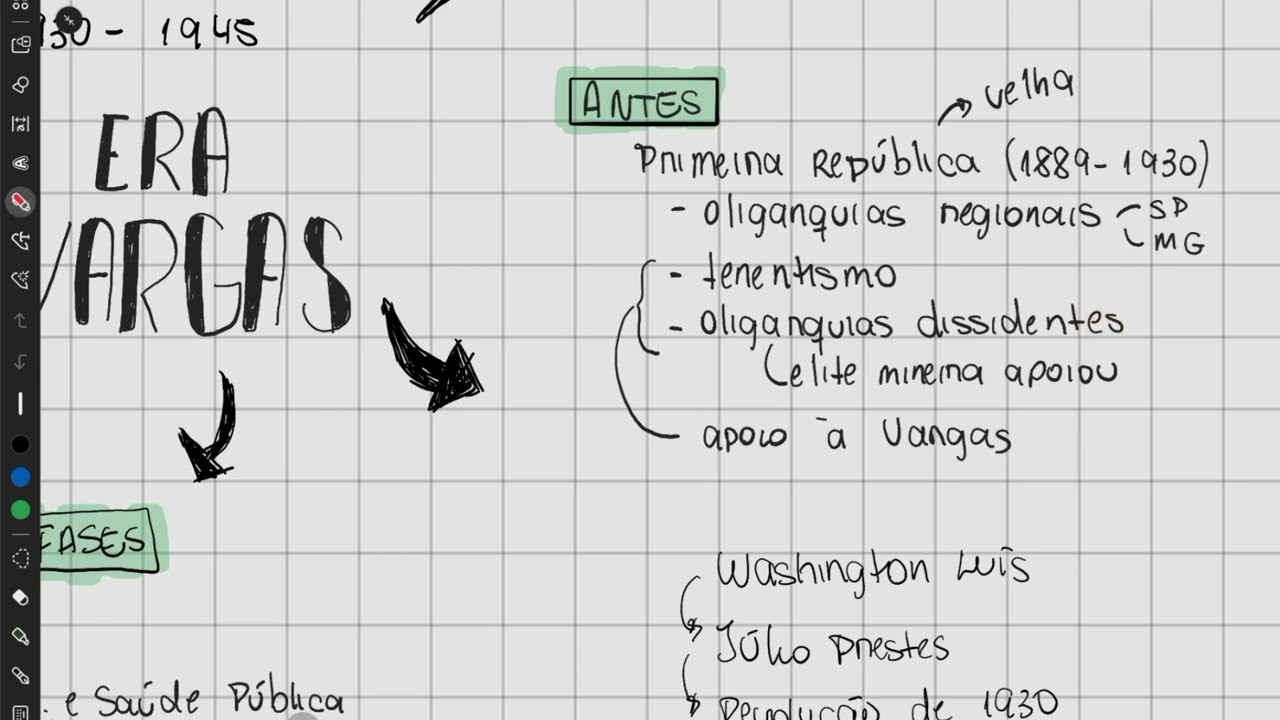 1930 - 1945
ERA
VARGAS
FASES
. e Saúde Pública
ANTES
velha
Primeira República (1889-1930)
- oligarquias regionais SP
MG
- tenentismo
- oligarquias dissidentes
elite mineira apoiou
apoio à Vargas
Washington Luís
Júlio Prestes
Revolução de 1930